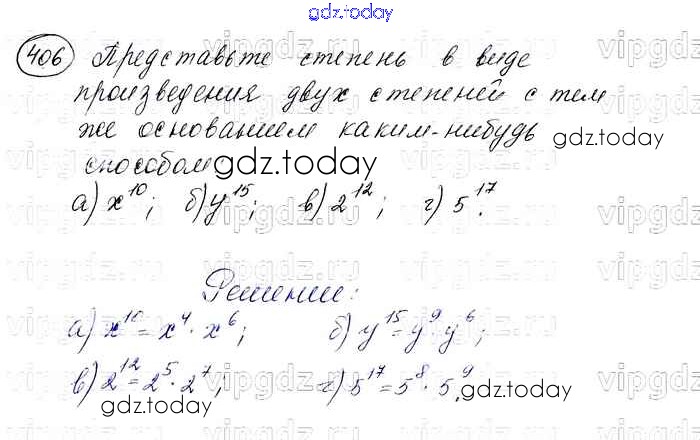 gdz.today
406 Представьте степень в виде
произведения двух степеней с тем
же основанием каким-нибудь gdz.today
способом gdz.today
а) x¹⁰; б) y¹⁵; в) 2¹²; г) 5¹⁷.
Решение:
а) x¹⁰ = x⁴ · x⁶; б) y¹⁵ = y⁹ y⁶;
в) 2¹² = 2⁵ · 2⁷; г) 5¹⁷ = 5⁸ · 5⁹.
gdz.today gdz.today